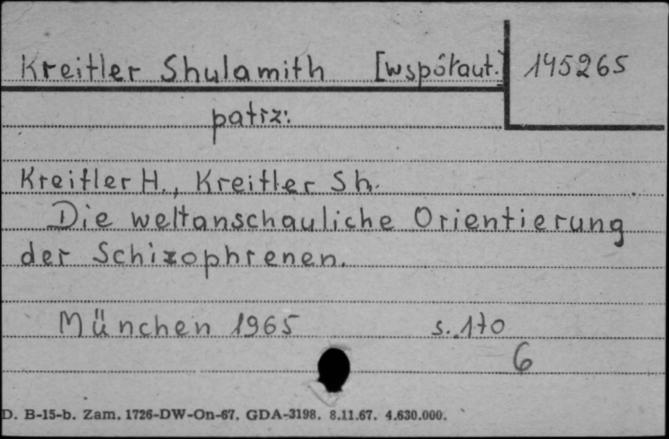 Kreitler Shulamith [współaut.] 145265
patrz:
Kreitler H., Kreitler Sh.
Die weltanschauliche Orientierung
der Schizophrenen.
München 1965 s. 170
6
D. B-15-b. Zam. 1726-DW-On-67. GDA-3198. 8.11.67. 4.630.000.